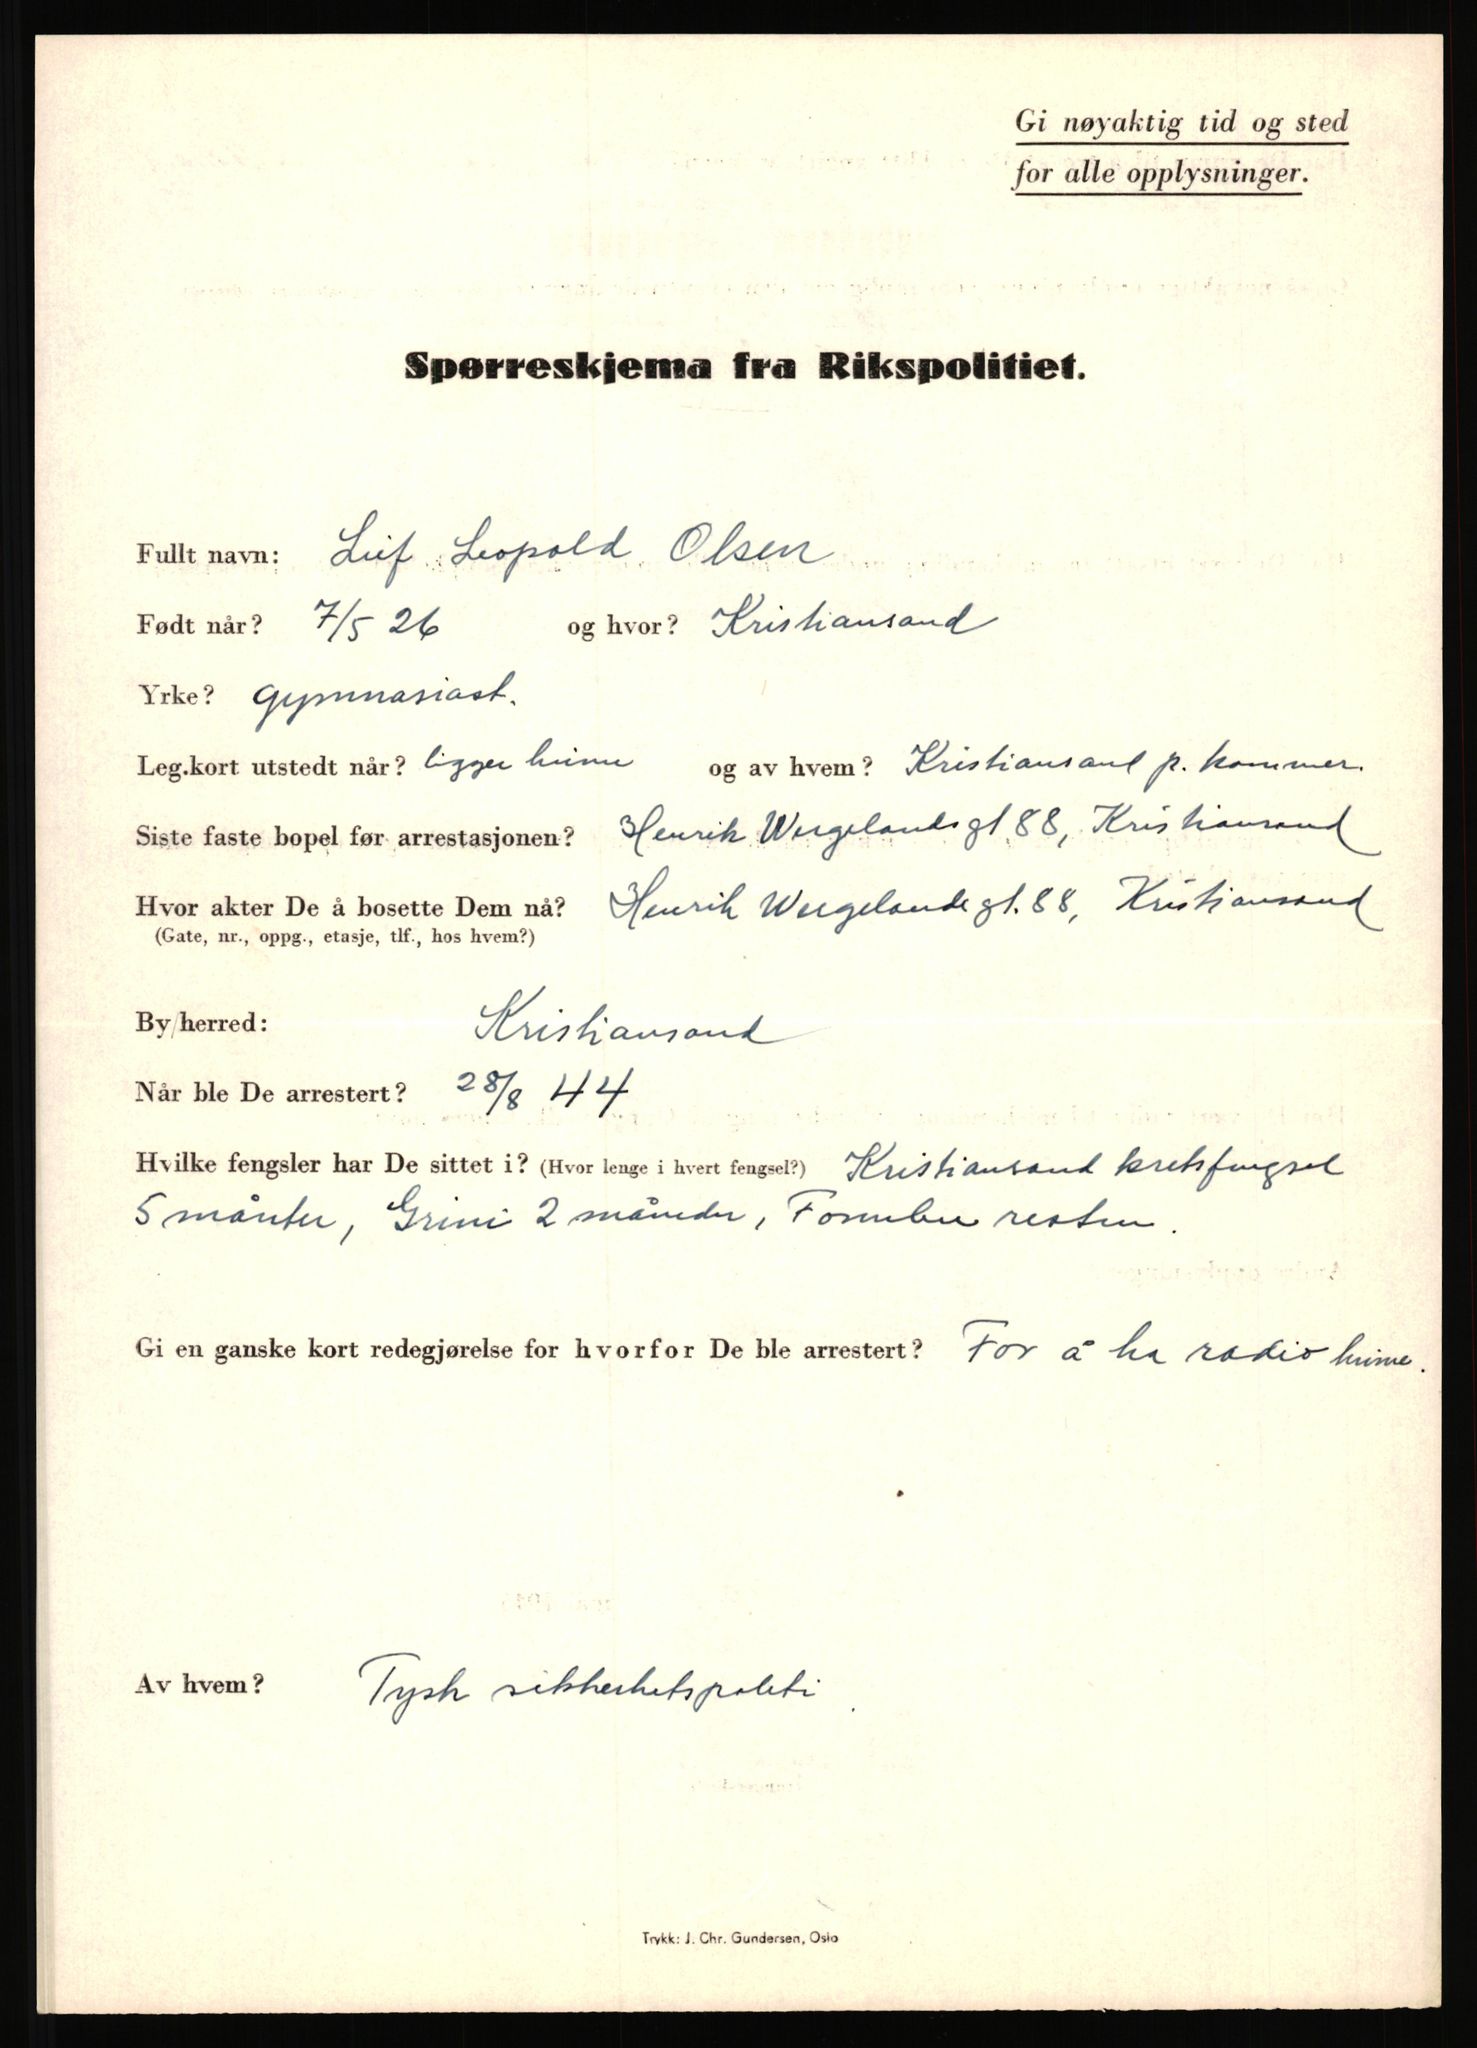 Gi nøyaktig tid og sted
for alle opplysninger.
Spørreskjema fra Rikspolitiet.
Fullt navn: Leif Leopold Olsen
Født når? 7/5 26 og hvor? Kristiansand
Yrke? Gymnasiast.
Leg.kort utstedt når? ligger hime og av hvem? Kristiansand p. kammer.
Siste faste bopel før arrestasjonen? Henrik Wergelandsgt 88, Kristiansand
Hvor akter De å bosette Dem nå? Henrik Wergelandsgt. 88, Kristiansand
(Gate, nr., oppg., etasje, tlf., hos hvem?)
By/herred: Kristiansand
Når ble De arrestert? 28/8 44
Hvilke fengsler har De sittet i? (Hvor lenge i hvert fengsel?) Kristiansand kretsfengsel
5 månter, Grini 2 måneder, Fornebu resten.
Gi en ganske kort redegjørelse for hvorfor De ble arrestert? For å ha radio hime.
Av hvem? Tysk sikkerhetspoliti.
Trykk: J. Chr. Gundersen, Oslo